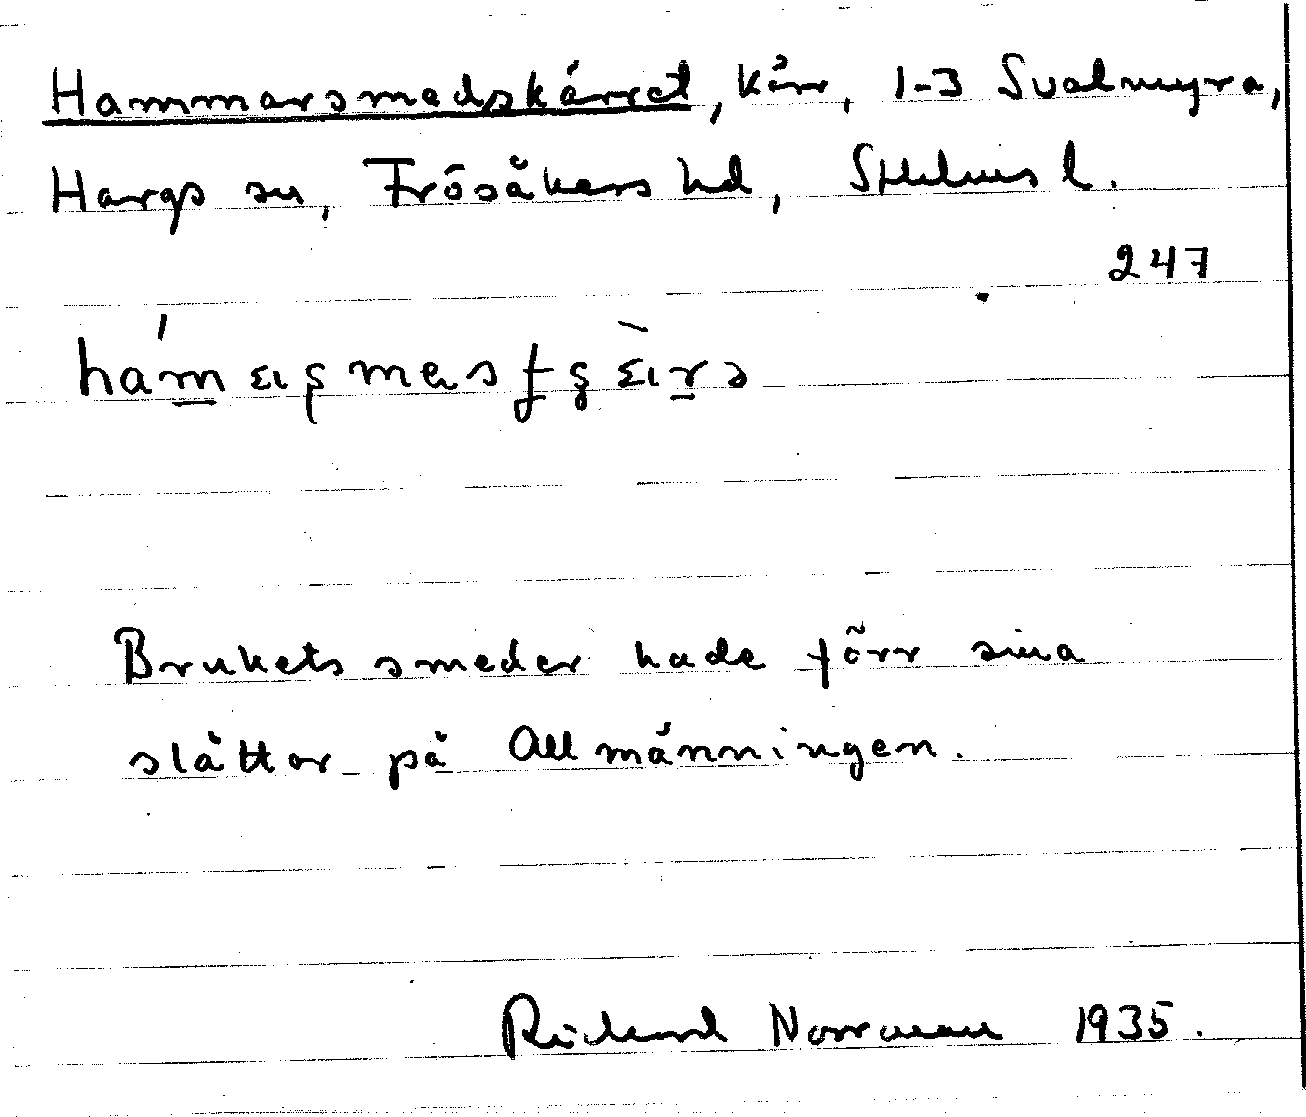 Hammarsmedskärret, kärr, 1-3 Svalmyra,
Hargs sn, Frösåkers hd, Sthlms l.
247
Brukets smeder hade förr sina
slåttor på Allmänningen.
Richard Norrman 1935.